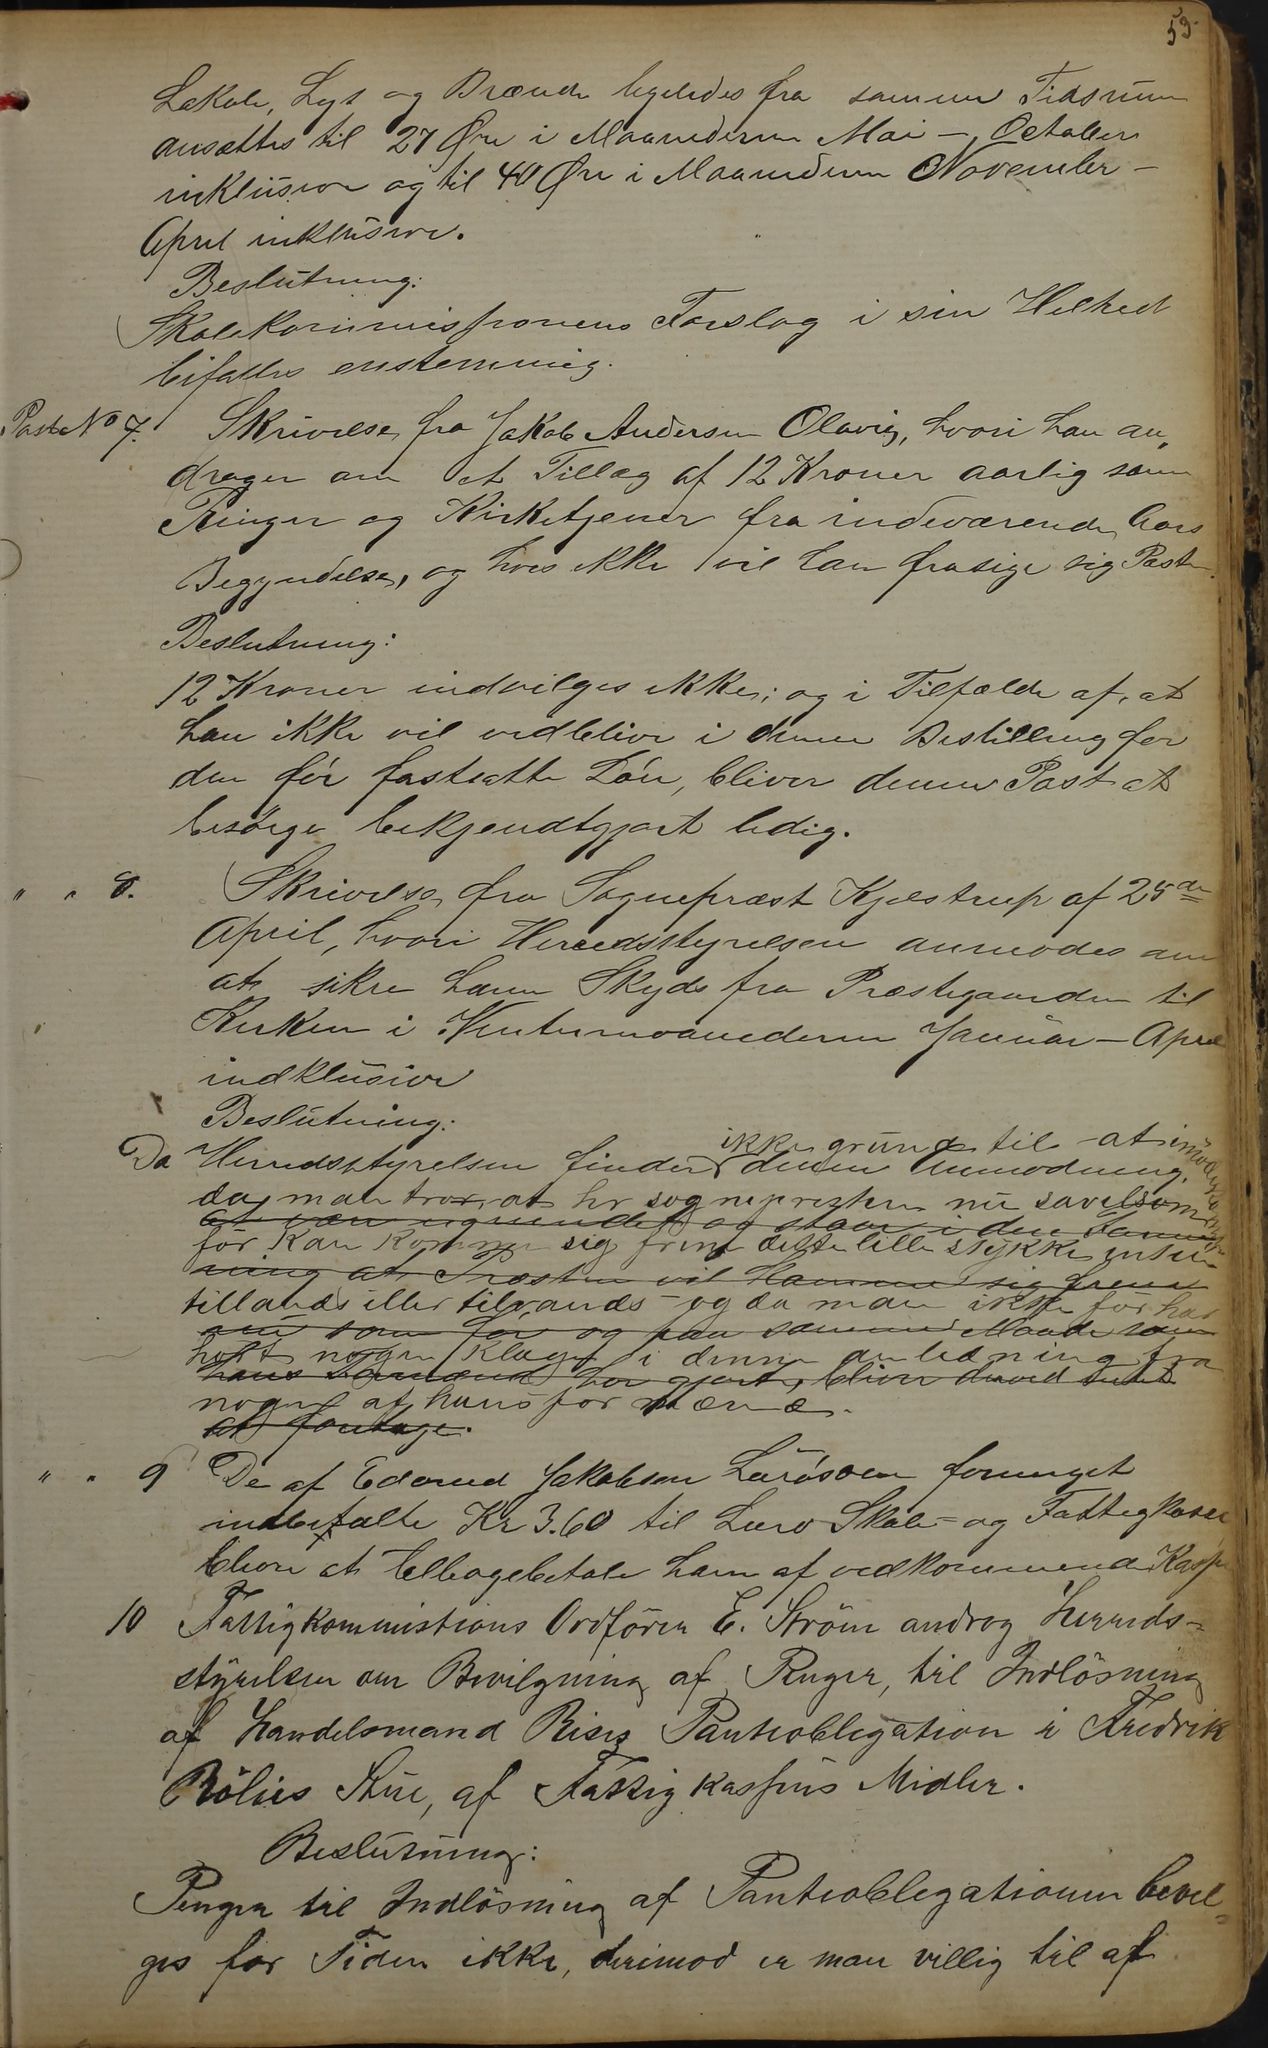 59.
Lokale, Lys og Brænde ligeledes fra samme Tidsrum
ansættes til 27 Øre i Maanederne Mai – October
inklusive og til 40 Øre i Maanederne November –
April inklusive.
Beslutning:
Skolekommissionens Forslag i sin Helhed
bifaldes enstemmig.
Post No 7. Skrivelse fra Jakob Andersen Olavig, hvori han an„
drager om et Tillæg af 12 Kroner aarlig som
Ringer og Kirketjener fra indeværende Aars
Begyndelse, og hvis ikke vil han frasige sig Posten.
Beslutning:
12 Kroner indvilges ikke; og i Tilfælde af, at
han ikke vil vedblive i denne Bestilling for
den før fastsatte Løn, bliver denne Post at
besørge bekjendtgjort ledig.
" " 8. Skrivelse fra Sognepræst Kjelstrup af 25de
April, hvori Herredsstyrelsen anmodes om
at sikre ham Skyds fra Præstegaarden til
Kirken i Vintermaanederne Januar – April
indklusive
Beslutning:
ikke grund til at
Da Herredsstyrelsen finder denne Anmodning,
da man tror, at hr sogneprezten nu savelsom
at være ugrundet og staar i den
før kan komme sig frem dette lille stykke enten
ning at Præsten vil komme sig frem
tillands eller tilvands – og da man ikke før har
nu som før og paa samme Maade som
hørt nogen klage i denne anledning fra
hans Formænd har gjort, bliver derved Intet
nogen af hans formænd.
at foretage.
" " 9 De af Edvard Jakobsen Lurøsoen
indbetalte Kr 3.60 til Lurø Skole- og Fattigkasse
bliver at tilbagebetale ham af vedkommende Kasse
10 Fattigkommistions Ordfører E. Strøm androg Herreds-
styrelsen om Bevilgning af Penger, til Indløsning
af Handelsmand Riisz Pantobligation i Fredrik
Bølies Stue, af Fattigkassens Midler.
Beslutning:
Penger til Indløsning af Pantobligationen bevil-
ges for Tiden ikke, derimod er man villig til af